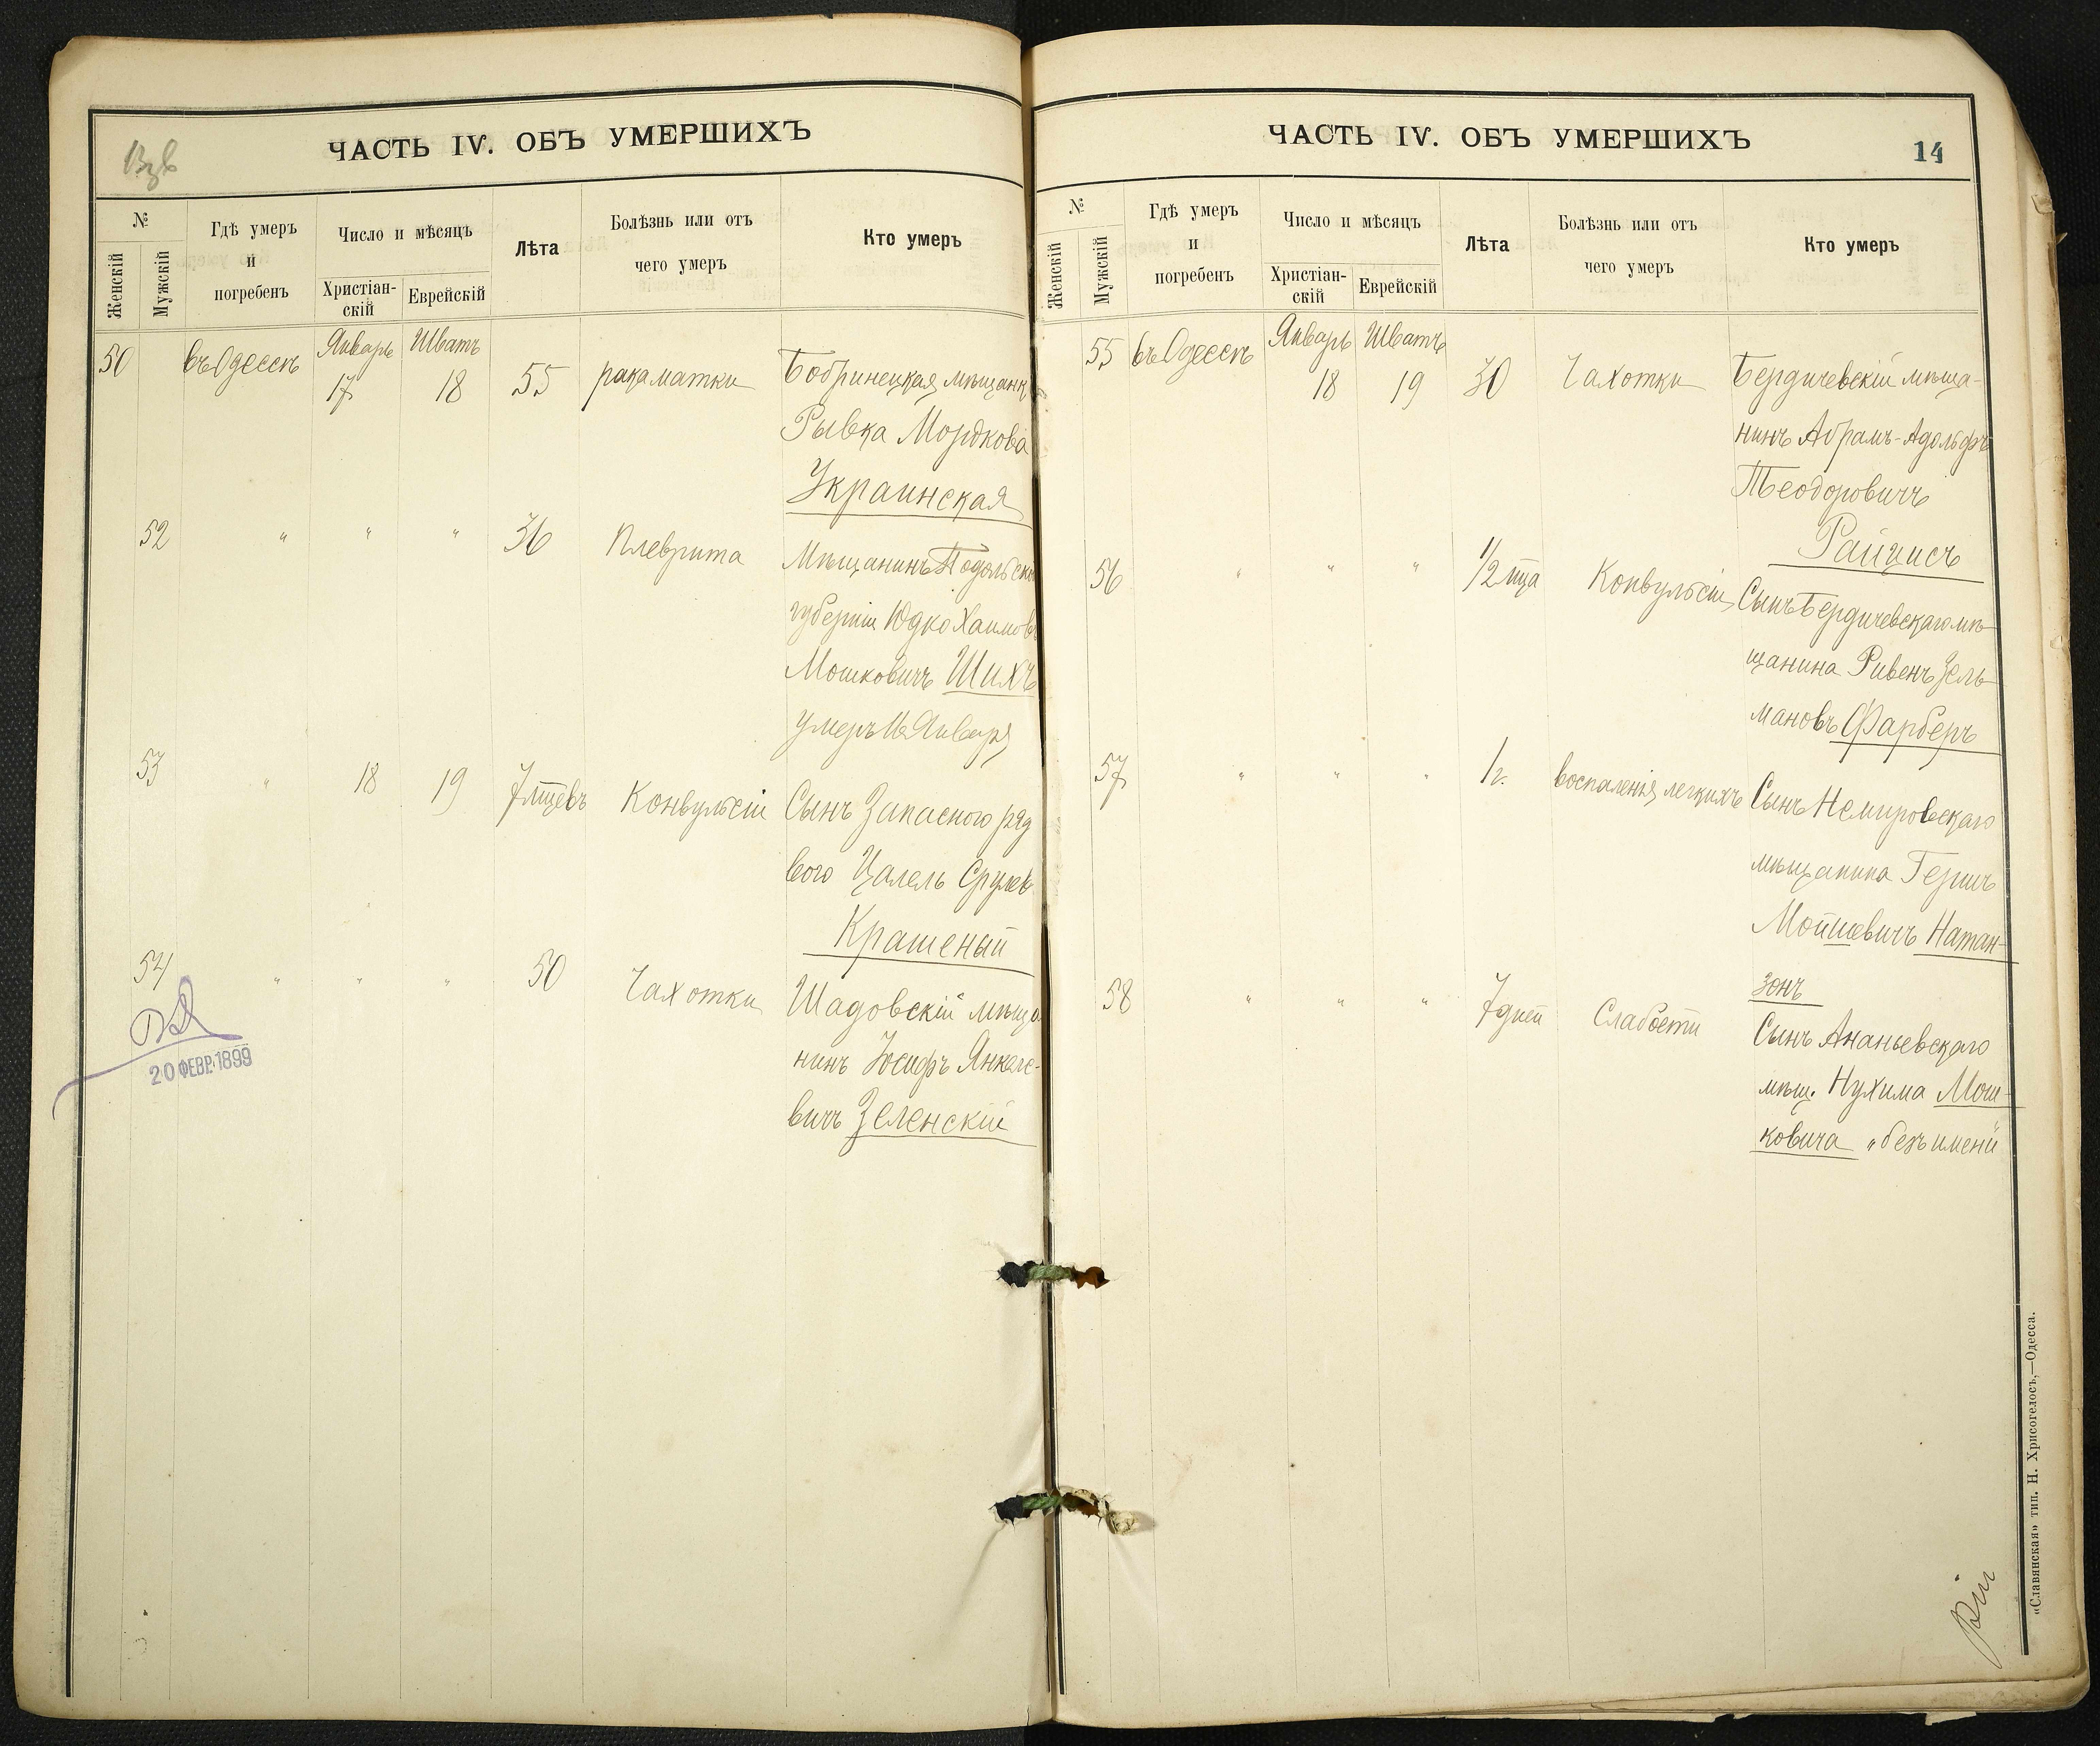 ЧАСТЬ IV. ОБЪ УМЕРШИХЪ
№
Женскій
Мужскій
Гдѣ умеръ
и
погребенъ
Число и мѣсяцъ
Христіан-
скій
Еврейскій
Лѣта
Болѣзнь или отъ
чего умеръ
Кто умеръ
50 въ Одессѣ Январь 17 Шватъ 18 55 рака матки Бобринецкая мѣщанк
Рывка Мордкова
Украинская
52 " " " 36 Плеврита Мѣщанинъ Подольск
губерніи Юдко Хаимовъ
Мошковичъ Шихъ
умеръ 16 Января
53 " 18 19 7 мцевъ Конвульсіи Сынъ Запасного ряд
вого Цалель Срулев
Крашеный
54 " " " 50 Чахотки Шадовскій мѣща
нинъ Іосифъ Янкеле-
вичъ Зеленскій
20 ФЕВР. 1899
ЧАСТЬ IV. ОБЪ УМЕРШИХЪ
14
№
Женскій
Мужскій
Гдѣ умеръ
и
погребенъ
Число и мѣсяцъ
Христіан-
скій
Еврейскій
Лѣта
Болѣзнь или отъ
чего умеръ
Кто умеръ
55 въ Одессѣ Январь 18 Шватъ 19 30 Чахотки Бердичевскій мѣща-
нинъ Абрамъ-Адольфъ
Теодоровичъ
Райцисъ
56 " " " 1/2 мца Конвульсіи Сынъ Бердичевскаго мѣ-
щанина Ривенъ Зель-
мановъ Фарберъ
57 " " " 1 г. воспаленія легкихъ Сынъ Немировскаго
мѣщанина Гершъ
Мойшевичъ Натан-
зонъ
58 " " " 7 дней Слабости Сынъ Ананьевскаго
мѣщ. Нухима Мош-
ковича „безъ имени"
«Славянская» тип. Н. Хрисогелосъ,—Одесса.